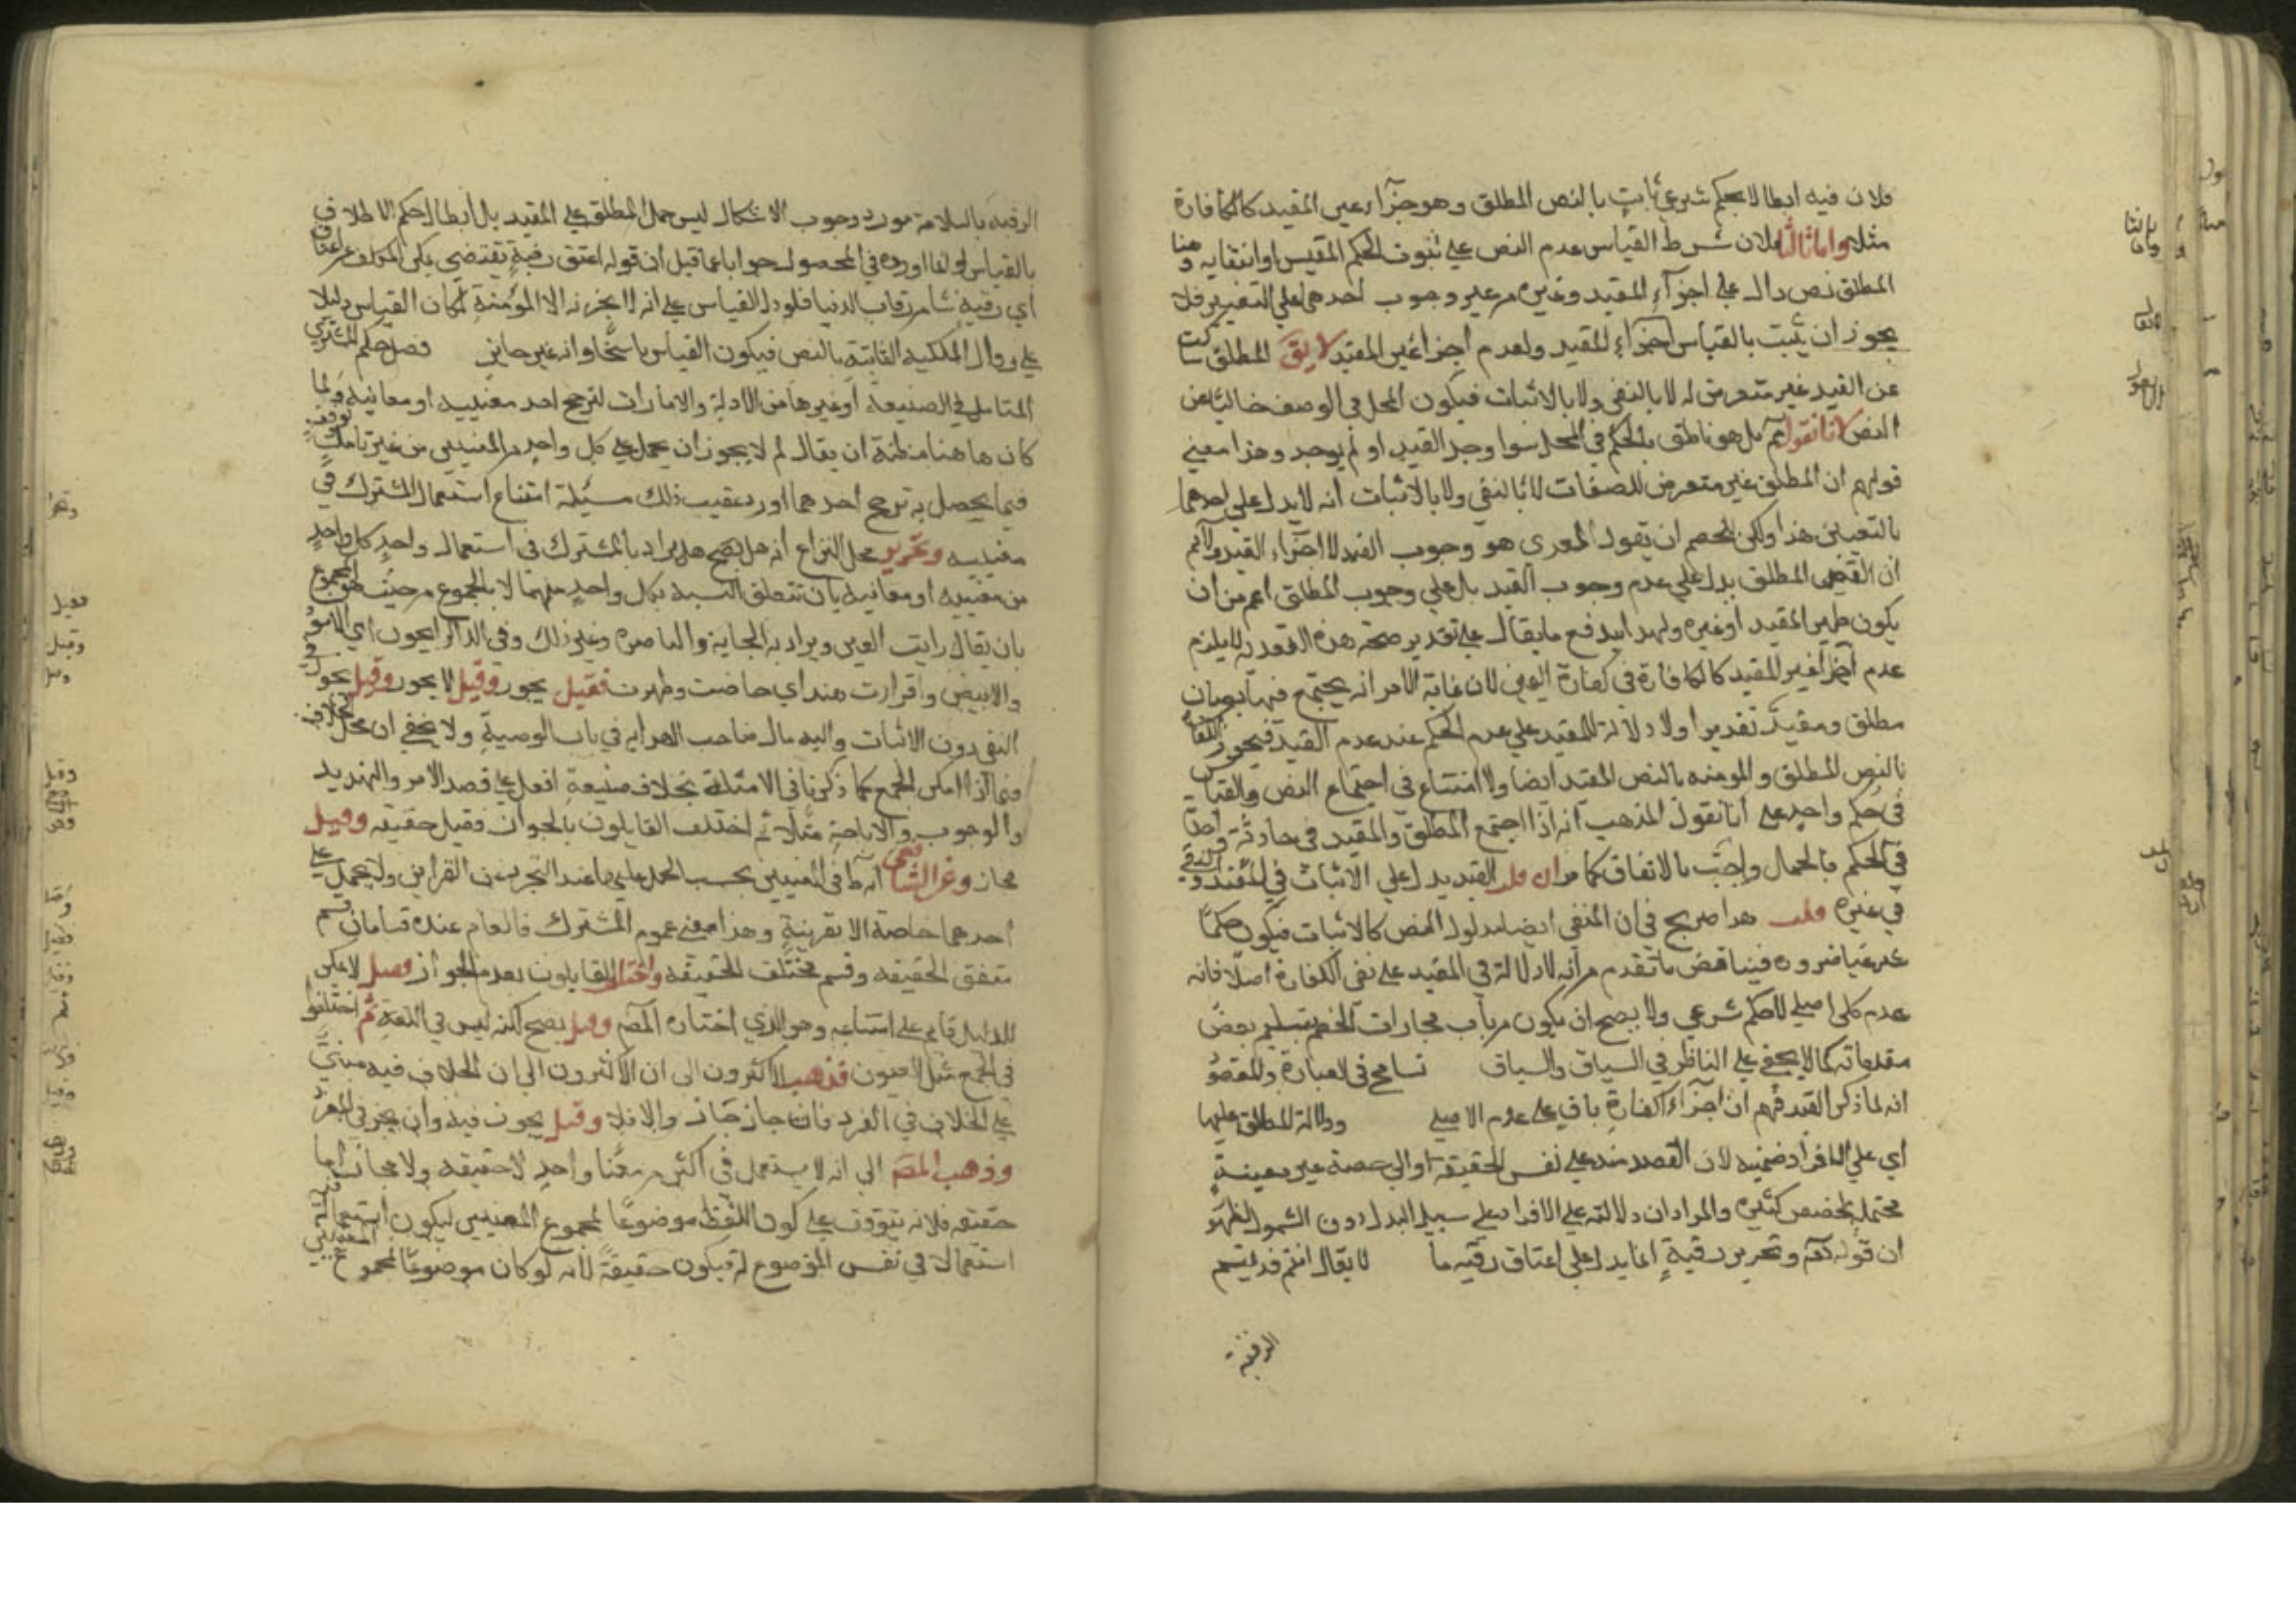 فلان فيه ابطالا لحكم شرعي ثابت بالنص المطلق وهو جزآء غير المقيد كالكافرة
مثلا واما ثالثا فلان شرط القياس عدم النص علي ثبوت الحكم المقيس او انتفايه وهنا
المطلق نص دال علي اجزآء المقيد وغيره من غير وجوب احدهما علي التعيين فلا
يجوز ان يثبت بالقياس اجزآء المقيد وعدم اجزا غير المقيد لا يق المطلق ساكت
عن القيد غير متعرض له لا بالنفي ولا بالاثبات فيكون المحل في الوصف خاليا عن
النص لانا نقول ثم بل هو ناطق بالحكم في المحل سوا وجد القيد او لم يوجد وهذا معني
قولهم ان المطلق غير متعرض للصفات لا بالنفي ولا بالاثبات انه لا يدل علي احدهما
بالتعيين هذا ولكن للخصم ان يقول المعدي هو وجوب القيد لا اجزاء القيد ولا ثم
ان النص المطلق يدل علي عدم وجوب القيد بل علي وجوب المطلق اعم من ان
يكون في المقيد او غيره وبهذا يندفع ما يقال علي تقدير صحة هذه التعدية لا يلزم
عدم اجزآ غير المقيد كالكافرة في كفارة اليمين لان غاية الامر انه يجتمع فيها نصان
مطلق ومقيد تقديرا ولا دلالة للمقيد علي عدم الحكم عند عدم القيد فيجوز الكفارة
بالنص المطلق والمومنه بالنص المقيد ايضا ولا امتناع في اجتماع النص والقياس
في حكم واحد علي انا نقول المذهب انه اذا اجتمع المطلق والمقيد في حادثة واحدة
في الحكم فالحمل واجب بالاتفاق كما مر ان قلت القيد يدل علي الاثبات في المقيد والنفي
في غيره قلت هذا صريح في ان النفي ايضا مدلول النص كالاثبات فيكون حكما
شرعيا ضروره فيناقض ما تقدم من انه لا دلالة في المقيد علي نفي الكفارة اصلا فانه
عدم كلي اصلي لا حكم شرعي ولا يصح ان يكون من باب مجارات الخصم بتسليم بعض
مقدماته كما لا يخفي علي الناظر في السياق والسباق تسامح في العبارة والمقصو
انه لما ذكر القيد فهم ان اجزآء الكفارة باق علي عدم الاصلي ودلالة المطلق عليها
اي علي الافراد ضمنيه لان القصد منه علي نفس الحقيقة او الي حصة غير معينة
محتملة لحصص كثيره والمراد ان دلالته علي الافراد علي سبيل البدل دون الشمول لظهو
ان قوله تعه وتحرير رقبة انما يدل علي اعتاق رقبه ما لا يقال انتم قد قيدتم
الرقبة
الرقبه بالسلامة مورد وجوب الاشكال ليس حمل المطلق علي المقيد بل ابطال حكم الاطلاق
بالقياس او لما اورده في المحصول جوابا عما قيل ان قوله اعتق رقبة يقتضي تمكن المكلف من اعتاق
اي رقبة شا من رقاب الدنيا فلو دل القياس علي انه لا يجزيه الا المؤمنة لكان القياس دليلا
علي زوال المكنة الثابتة بالنص فيكون القياس ناسخا وانه غير جايز فصل حكم المشترك
التامل في الصيغة او غيرها من الادلة والامارات لترجح احد معنييه او معانيه ولما
كان هاهنا مظنة ان يقال لم لا يجوز ان يحمل علي كل واحد من المعنيين من غير توقف وتامل
فيما يحصل به ترجح احدهما اورد عقيب ذلك مسئلة امتناع استعمال المشترك في
معنييه وتحرير محل النزاع انه هل يصح ان يراد بالمشترك في استعمال واحد كل واحد
من معنييه او معانيه بان تتعلق النسبة بكل واحد منهما لا بالمجموع من حيث هو المجموع
بان يقال رايت العين ويراد به الجارية والباصره وغير ذلك وفي الدار الجون اي الاسود
والابيض واقرات هند اي حاضت وطهرت فقيل يجوز وقيل لا يجوز وقيل يجوز في
النفي دون الاثبات واليه مال صاحب الهدايه في باب الوصية ولا يخفي ان محل الخلاف
فيما اذا امكن الجمع كما ذكرنا في الامثلة بخلاف صيغة افعل علي قصد الامر والتهديد
والوجوب والاباحة مثلا ثم اختلف القايلون بالجواز فقيل حقيقه وقيل
مجاز وعن الشافعي انه ظ في المعنيين يجب الحمل عليهما عند التجرد عن القراين ولا يحمل علي
احدهما خاصة الا بقرينة وهذا معني عموم المشترك فالعام عنده قسمان قسم
متفق الحقيقه وقسم مختلف الحقيقة واختلف القايلون بعدم الجواز فقيل لا يمكن
للدليل قايم علي امتناعه وهو الذي اختاره المصه وقيل يصح لكنه ليس في اللغة ثم اختلفوا
في الجمع مثل العيون فذهب الاكثرون الي ان الاكثرون الي ان الخلاف فيه مبني
علي الخلاف في المفرد فان جاز جاز والا فلا وقيل يجوز فيه وان لم يجز في المفرد
وذهب المصه الي انه لا يستعمل في اكثر من معنا واحد لا حقيقه ولا مجازا اما
حقيقه فلانه يتوقف علي كون اللفظ موضوعا لمجموع المعنيين ليكون استعماله
استعمالا في نفس الموضوع له فيكون حقيقة لانه لو كان موضوعا لمجموع المعنيين